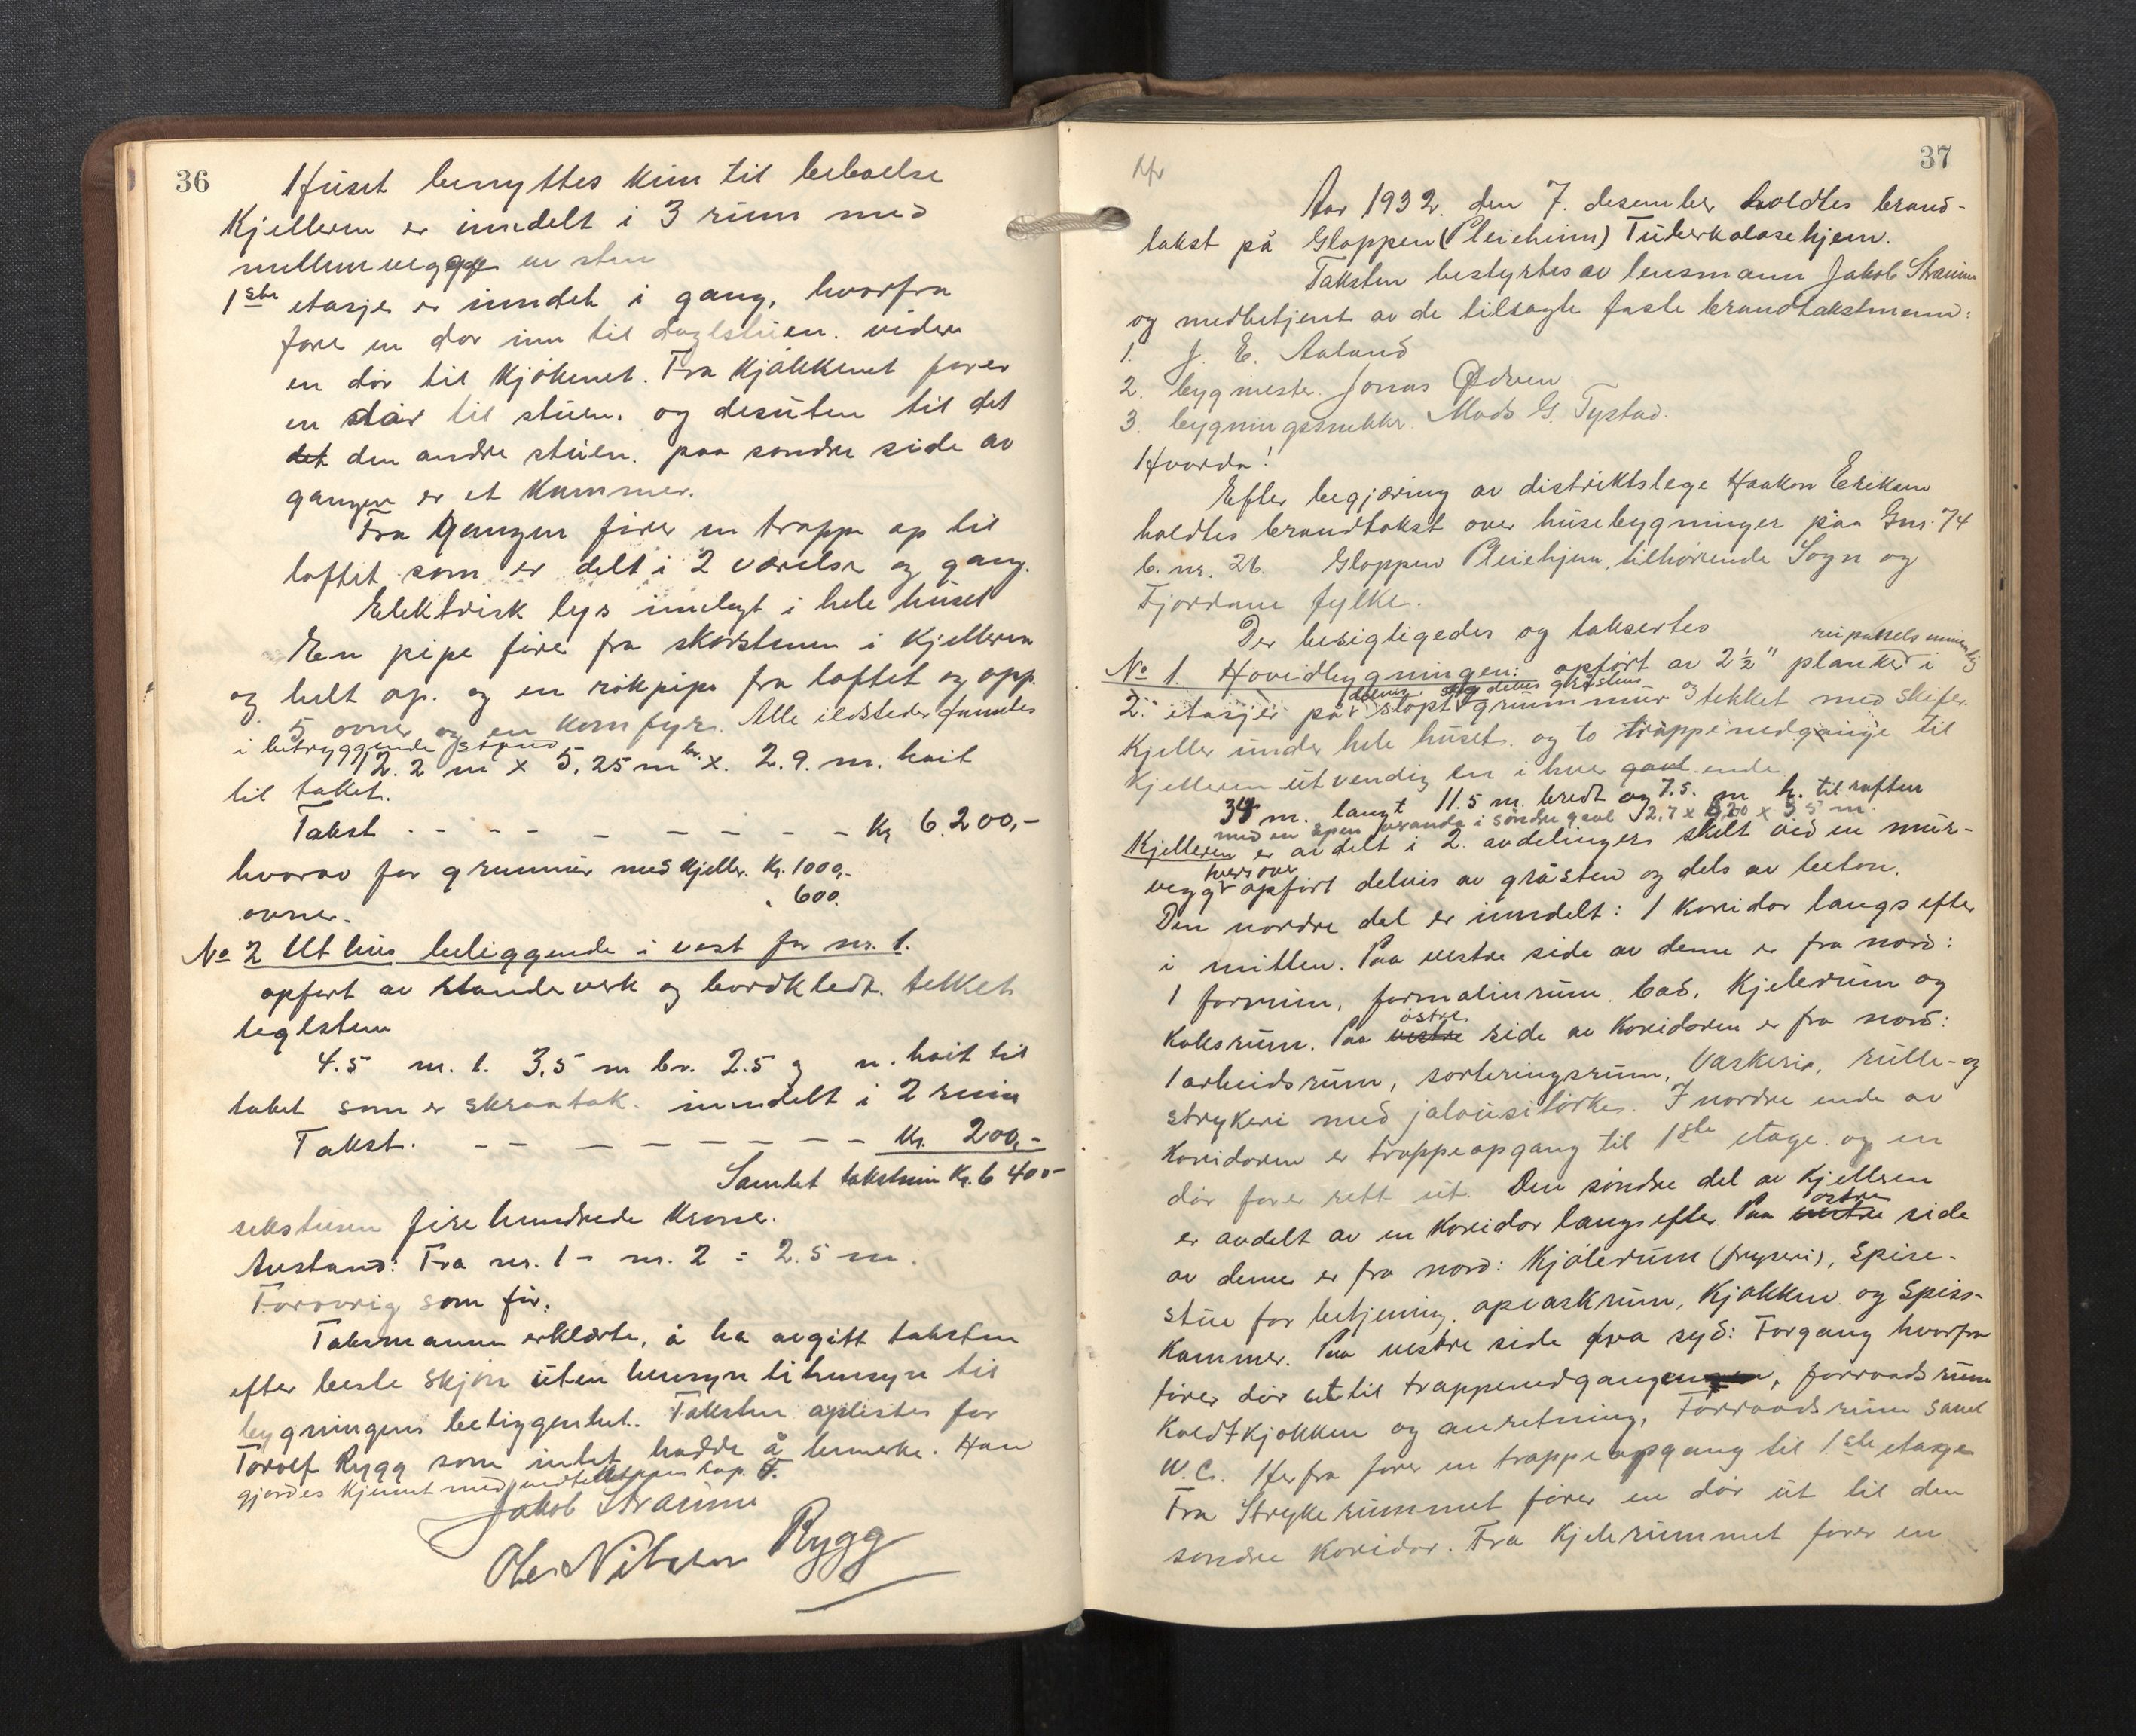 36
Huset benyttes kun til beboelse
Kjelleren er inndelt i 3 rum med
mellemvegger av sten
1ste etasje er inndelt i gang, hvorfra
fører en dør inn til daglstuen. videre
en dør til kjøkenet. Fra kjøkkenet fører
en dør til stuen. og desuten til det
det den andre stuen. paa søndre side av
gangen er et kammer.
Fra gangen fører en trappe op til
loftet som er delt i 2 værelser og gang.
Elektrisk lys innlagt i hele huset
En pipe fører fra skorstenen i kjelleren
og helt op. og en rökpipe fra loftet og opp.
5 ovner og en komfyr. Alle ildsteder fantes
i betryggende stand
12.2 m x 5,25 m br. x. 2.9. m. höit
til taket.
Takst - - - - - - - - - Kr 6.200,-
hvorav for grunmur med kjeller. Kr. 1000,-
ovner. " 600.
No 2 Uthus beliggende i vest for nr. 1.
opført av standerverk og bordkledt. tekket
teglsten
4.5 m. l. 3,5 m br. 2.5 m. höit til
taket som er skraatak. inndelt i 2 rum
Takst. - - - - - - - - - Kr. 200,-
Samlet takstsum Kr. 6 400-
sekstusen firehundrede kroner.
Avstand: Fra nr. 1 - nr. 2 = 2.5 m.
Forøvrig som før.
Taksmennene erklærte, å ha avgitt taksten
efter beste skjøn uten hensyn ti hensyn til
bygningens beliggenhet. Taksten oplæstes for
Torolf Rygg som intet hadde å bemerke. Han
gjordes kjennt med
Jakob Straume
Ole Nilsen Rygg
37
Aar 1932. den 7. desember holdtes brand-
takst på Gloppen (Pleieheim) Tuberkulosehjem.
Taksten bestyrtes av lensmann Jakob Straume
og medbetjent av de tilsagte faste brandtakstmenn:
1. J. E. Aaland
2. bygmester Jonas Ødven
3. bygningssnekker Mads G. Tystad.
Hvorda!
Efter begjæring av distriktslege Haakon Eriksen
holdtes brandtakst over husebygninger paa Gnr. 74
b. nr. 26. Gloppen Pleiehjem, tilhørende Sogn og
Fjordane fylke.
Der besigtigedes og taksertes
No 1. Hovedbygningen: opført av 2½" planker i
2. etasjer på støpt grunnmur og tekket med skifer.
delvis og delvis gråstens
Kjeller under hele huset. og to trappenedgange til
kjelleren utvendig en i hver gavl ende
34 m. langt 11.5 m. bredt og 7.5. m h. til raften
med en åpen veranda i søndre gavl
Kjelleren er avdelt i 2. avdelinger skilt ved en mur-
tvers over
vegg opført delvis av gråsten og dels av beton.
Den nordre del er inndelt: 1 koridor langs efter
i mitten. Paa vestre side av denne er fra nord:
1 forrum, formalinrum. bad, Kjelerum og
østre
Koksrum. Paa vestre side av Koridoren er fra nord:
1 arbeidsrum, sorteringsrum, Vaskeri, rulle- og
strykeri med jalousitørke. I nordre ende av
Koridoren er trappeopgang til 1ste etage. og en
dör fører rett ut. Den søndre del av kjelleren
østre
er avdelt av en koridor langs efter Paa vestre side
av denne er fra nord: Kjølerum (fryseri), Spise-
stue for betjening, opvaskrum, Kjøkken og Spiss-
kammer. Paa vestre side fra syd: Forgang hvorfra
fører dør ut til trappenedgangen, forraadsrum
Koldtkjøkken og anretning, Forraadsrum samt
W.C. Herfra fører en trappeopgang til 1ste etasje
Fra Strykerummet fører en dör ut til den
søndre koridor. Fra Kjelerummet fører en